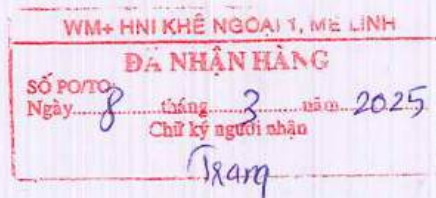 WM+ HNI KHÊ NGOẠI 1, MÊ LINH
ĐÃ NHẬN HÀNG
SỐ PO/TO:
Ngày 8 tháng 3 năm 2025
Chữ ký người nhận
Trang